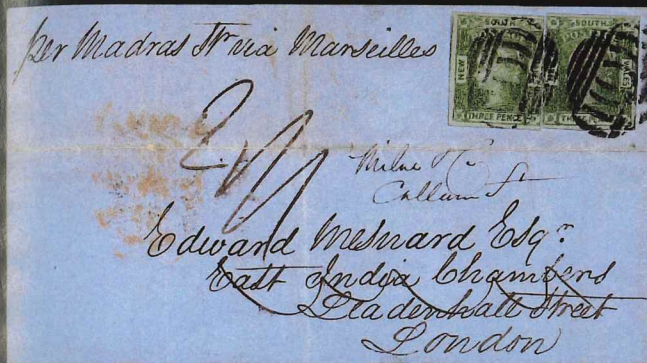 per Madras Str via Marseilles
SOUTH
NEW
WALES
THREE PENCE
SOUTH
WALES
TH
2/
Milne & Co
Cullum St
Edward Mesnard Esqr.
East India Chambers
Leadenhall Street
London